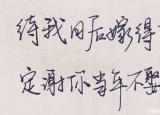 待我日后嫁得
定谢你当年不娶